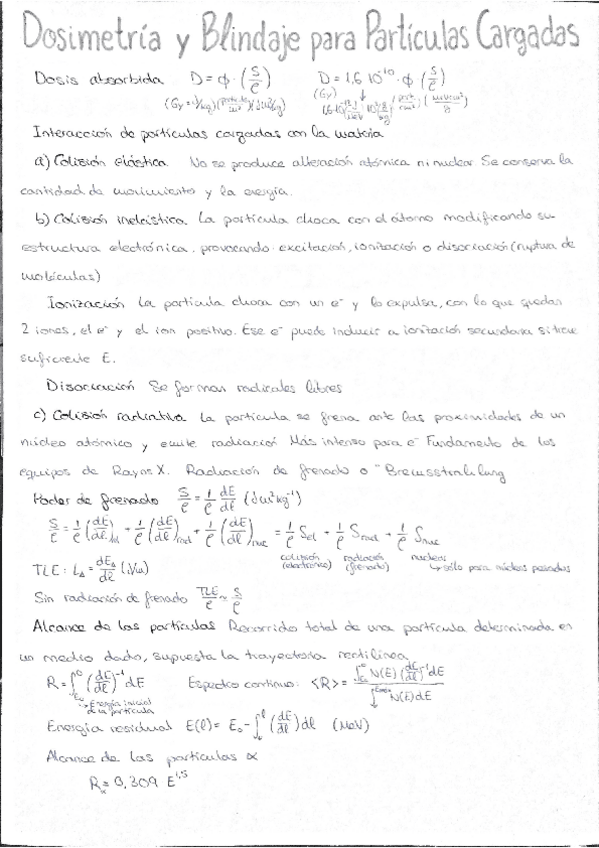 Dosimetría y Blindaje para Partículas Cargadas
Dosis absorbida D = φ · (S/ρ) D = 1,6 10⁻¹⁰ · φ (S/ρ)
(Gy)
Interacción de partículas cargadas con la materia
a) Colisión elástica No se produce alteración atómica ni nuclear. Se conserva la
cantidad de movimiento y la energía.
b) Colisión inelástica. La partícula choca con el átomo modificando su
estructura electrónica, provocando: excitación, ionización o disociación (ruptura de
moléculas)
Ionización La partícula choca con un e⁻ y lo expulsa, con lo que quedan
2 iones, el e⁻ y el ion positivo. Ese e⁻ puede inducir a ionización secundaria si tiene
suficiente E.
Disociación Se forman radicales libres
c) Colisión radiativa La partícula se frena ante las proximidades de un
núcleo atómico y emite radiación Más intenso para e⁻ Fundamento de los
equipos de Rayos X. Radiación de frenado o
Poder de frenado S/ρ = 1/ρ dE/dl (J m² kg⁻¹)
S/ρ = 1/ρ (dE/dl)el + 1/ρ (dE/dl)rad + 1/ρ (dE/dl)nuc = 1/ρ Sel + 1/ρ Srad + 1/ρ Snuc
colisión radiación nuclear
(electrónico) (frenado) ↳ sólo para núcleos pesados
TLE: LΔ = dEΔ/dl (J/m)
Sin radiación de frenado TLE/ρ ≈ S/ρ
Alcance de las partículas Recorrido total de una partícula determinada en
un medio dado, supuesta la trayectoria rectilínea
R = ∫ (dE/dl)⁻¹ dE Espectro continuo: <R> =
↳ Energía inicial
de la partícula
Energía residual E(l) = E₀ - ∫₀ˡ (dE/dl) dl (MeV)
Alcance de las partículas α
Rα = 0,309 E^1,5